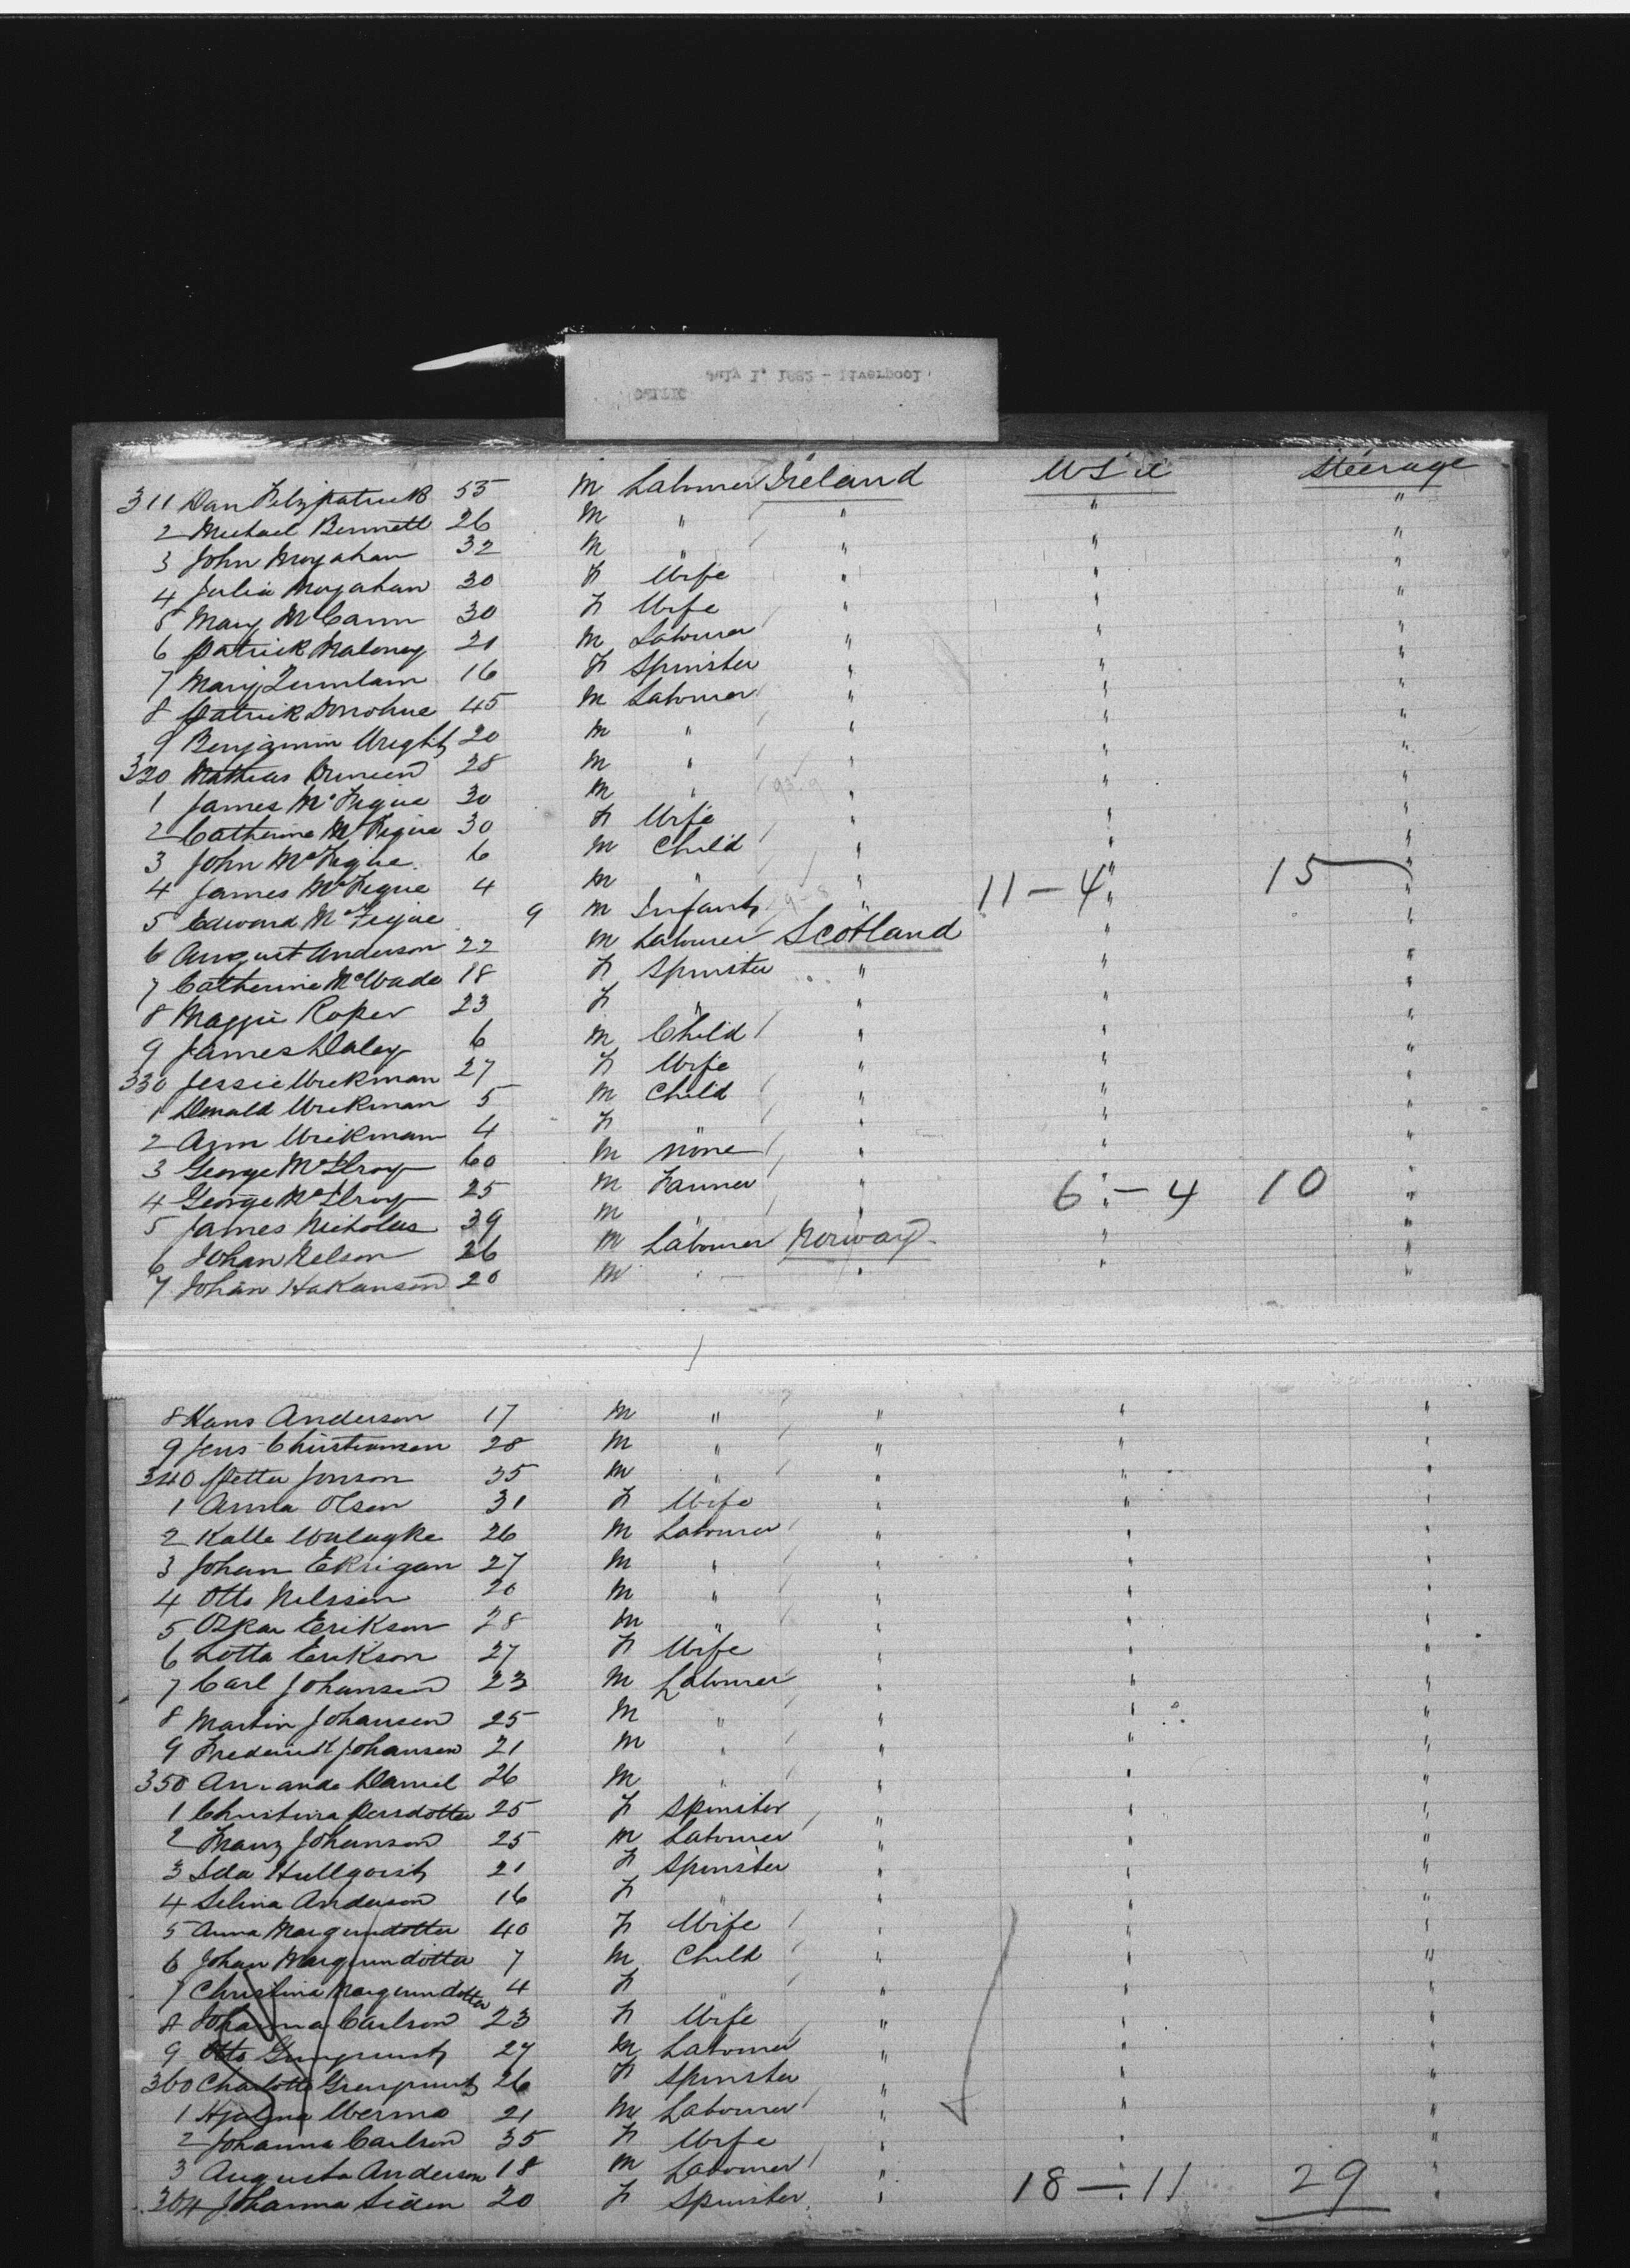 CELTIC
July 1, 1882 - Liverpool
311 Dan Fitzpatrick 55 M Labourer Ireland USA Steerage
2 Michael Bennett 26 M " " " "
3 John Moyahan 32 M " " " "
4 Julia Moyahan 30 F Wife " " "
5 Mary McCann 30 F Wife " " "
6 Patrick Maloney 21 M Labourer " " "
7 Mary 16 F Spinster " " "
8 Patrick Donohue 45 M Labourer " " "
9 Benjamin Wright 20 M " " " "
320 Mathias 28 M " " " "
1 James McTigue 30 M " " " "
2 Catherine McTigue 30 F Wife " " "
3 John McTigue 6 M Child " " "
4 James McTigue 4 M " " 11 - 4 " 15 "
5 Edward McTigue 9 M Infant " " "
6 August Anderson 22 M Labourer Scotland " "
7 Catherine McWade 18 F Spinster " " "
8 Maggie Roper 23 F " " " "
9 James Daley 6 M Child " " "
330 Jessie Wickman 27 F Wife " " "
1 Donald Wickman 5 M Child " " "
2 Ann Wickman 4 F " " " "
3 George McIlroy 60 M None " " "
4 George McIlroy 25 M Farmer " 6 - 4 10 "
5 James Nicholas 39 M " " " "
6 Johan Nelson 26 M Labourer Norway " "
7 Johan Hakanson 20 M " " " "
8 Hans Anderson 17 M " " " "
9 Jens Christiansen 28 M " " " "
340 Petter Jonson 35 M " " " "
1 Anna Olsen 31 F Wife " " "
2 Kalle 26 M Labourer " " "
3 Johan Ekrigan 27 M " " " "
4 Otto Nelssen 20 M " " " "
5 Oskar Erikson 28 M " " " "
6 Lotta Erikson 27 F Wife " " "
7 Carl Johansen 23 M Labourer " " "
8 Martin Johansen 25 M " " " "
9 Frederick Johansen 21 M " " " "
350 Daniel 26 M " " " "
1 Christina Persdotter 25 F Spinster " " "
2 Franz Johanson 25 M Labourer " " "
3 Ida Hellqvist 21 F Spinster " " "
4 Selina Anderson 16 F " " " "
5 Anna Margundotter 40 F Wife " " "
6 Johan Margundotter 7 M Child " " "
7 Christina Margundotter 4 F " " " "
8 Johanna Carlson 23 F Wife " " "
9 Otto 27 M Labourer " " "
360 Charlotte 26 F Spinster " " "
1 Hjalma 21 M Labourer " " "
2 Johanna Carlson 35 F Wife " " "
3 Augusta Anderson 18 M Labourer " " "
364 Johanna Siden 20 F Spinster " 18 - 11 29 "